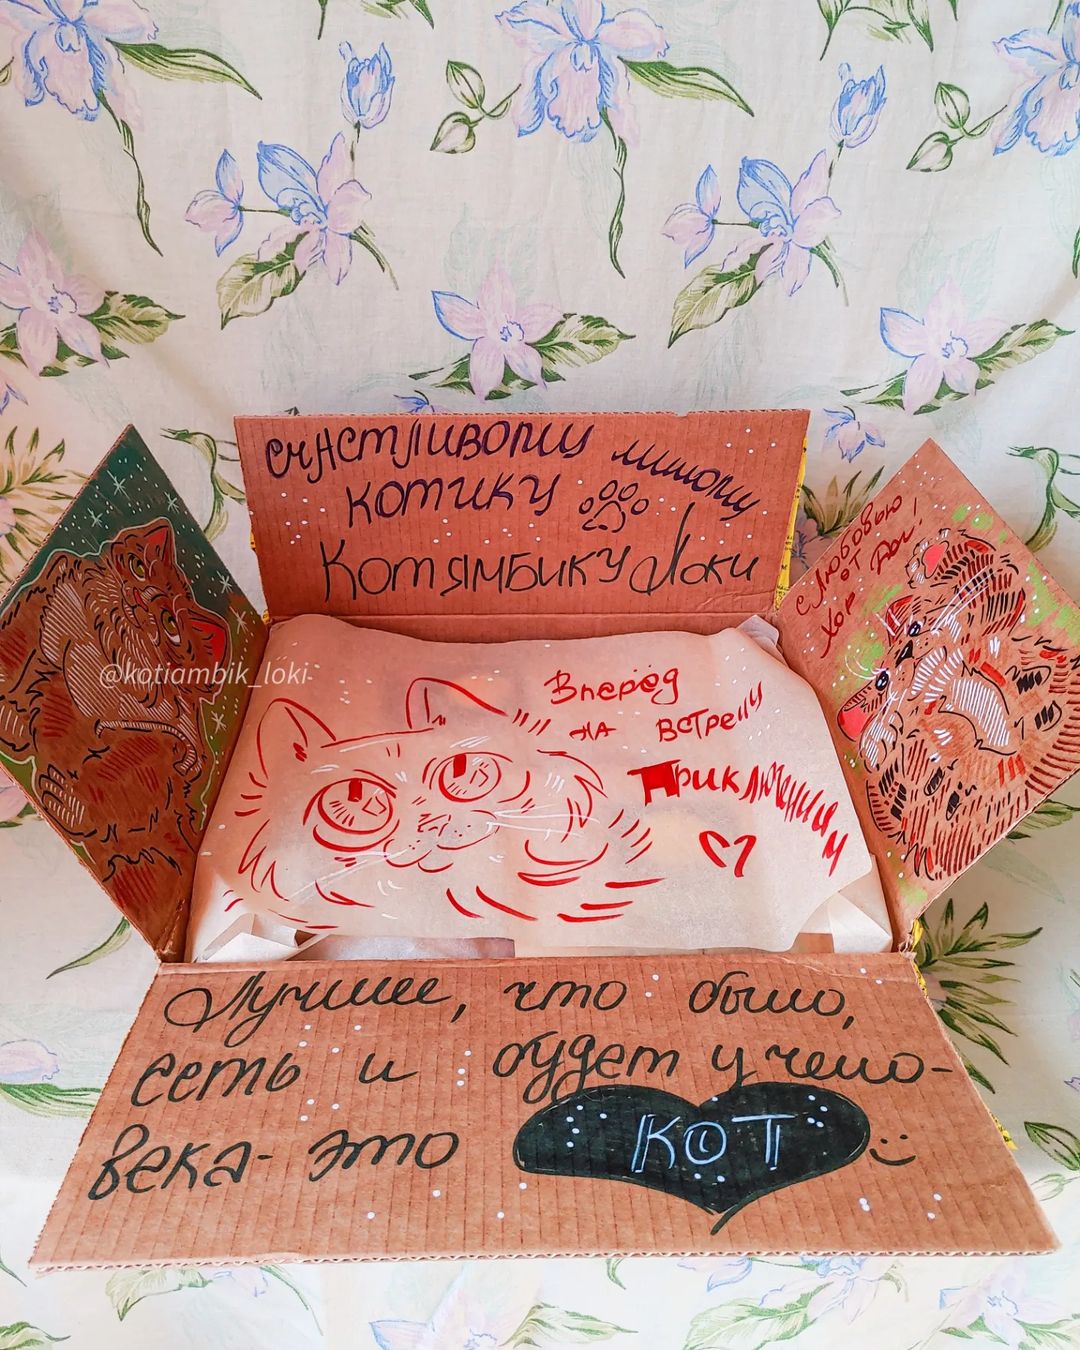 Счастливому милому
котику
Котямбику Локи
с любовью
от
Хор
@kotiambik_loki
Вперёд
на встречу
Приключениям
Лучшее, что было,
есть и будет у чело-
века - это КОТ